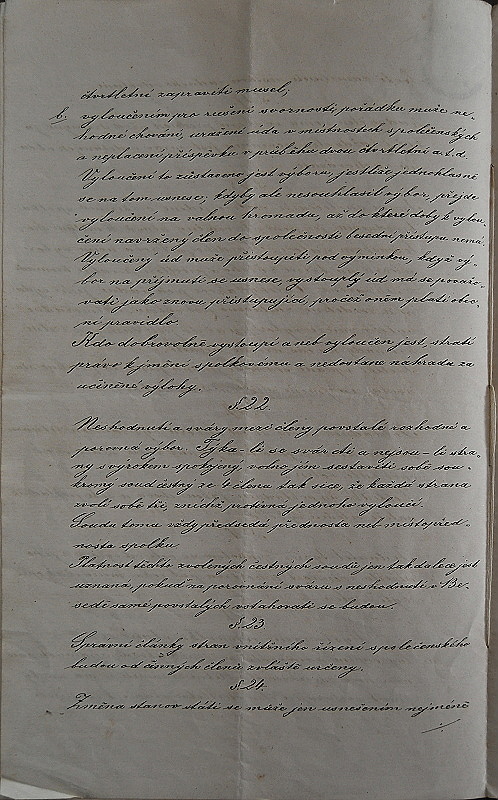 čtvrtletní zapraviti musel;
b. vyloučením pro rušení svornosti, pořádku muže ne-
hodné chování, uražení úda v místnostech společenských
a neplacení příspěvku v průběhu dvou čtvrtletní a.t.d.
Vyloučení to zůstaveno jest výboru, jestliže jednohlasně
se na tom usnese; kdyby ale nesouhlasil výbor, přejde
vyloučení na valnou hromadu, až do které doby k vylou-
čení navržený člen do společnosti besední přístupu nemá.
Vyloučený úd muže přistoupiti pod výminkou, když vý-
bor na přijmutí se usnese, vystouplý úd má se považo-
vati jako znovu přistupující, pročež o něm platí obec-
ní pravidlo.
Kdo dobrovolně vystoupí a neb vyloučen jest, stratí
právo k jmění spolkovému a nedostane náhradu za
učiněné výlohy.
§ 22.
Neshodnutí a sváry mezi členy povstalé rozhodne a
porovná výbor. Týka-li se svár cti a nejsou-li stra-
ny s výrokem spokojeny, volno jim sestaviti sobě sou-
kromý soud čestný ze 4 členů tak sice, že každá strana
zvolí sobě tři, z nichž protivná jednoho vyloučí.
Soudu tomu vždy předsedá přednosta neb místopřed-
nosta spolku.
Platnost těchto zvolených čestných soudů jen tak dalece jest
uznaná, pokud na porovnání sváru a neshodnutí v Be-
sedě samé povstalých vstahovati se budou.
§ 23.
Správní články stran vnitřního řízení společenského
budou od činných členů zvláště určeny.
§ 24.
Změna stanov státi se může jen usnešením nejméně
./.